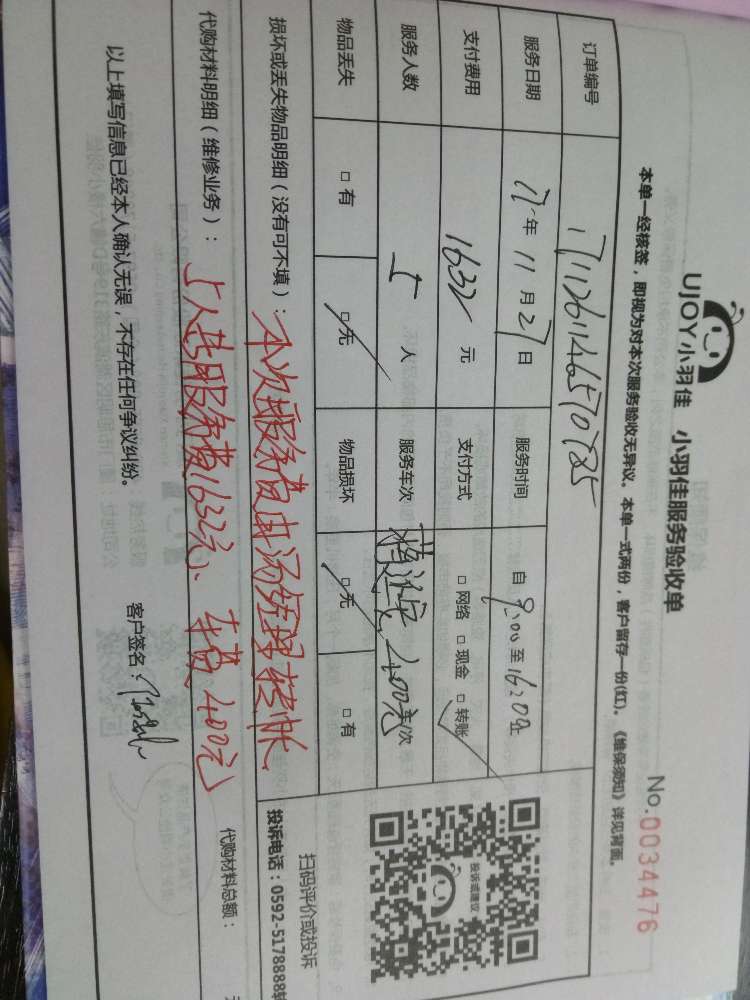 UJOY小羽佳 小羽佳服务验收单
No.0034476
本单一经核签，即视为对本次服务验收无异议。本单一式两份，客户留存一份(红)。《维保须知》详见背面。
订单编号
服务日期 17年 11月 27日 服务时间 自 9:00 至 16:20止
支付费用 1632 元 支付方式 □网络 □现金 □转账
服务人数 5 人 服务车次 400元 车/次
物品丢失 □有 □无 物品损坏 □无 □有
投诉或建议
扫码评价或投诉
投诉电话：0592-5178888转
损坏或丢失物品明细（没有可不填）：本次服务费由汤经理转帐
代购材料明细（维修业务）：5人共服务费1632元、车费400元
代购材料总额：
以上填写信息已经本人确认无误，不存在任何争议纠纷。
客户签名：